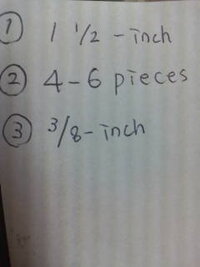 ① 1 1/2 - inch
② 4-6 pieces
③ 3/8-inch